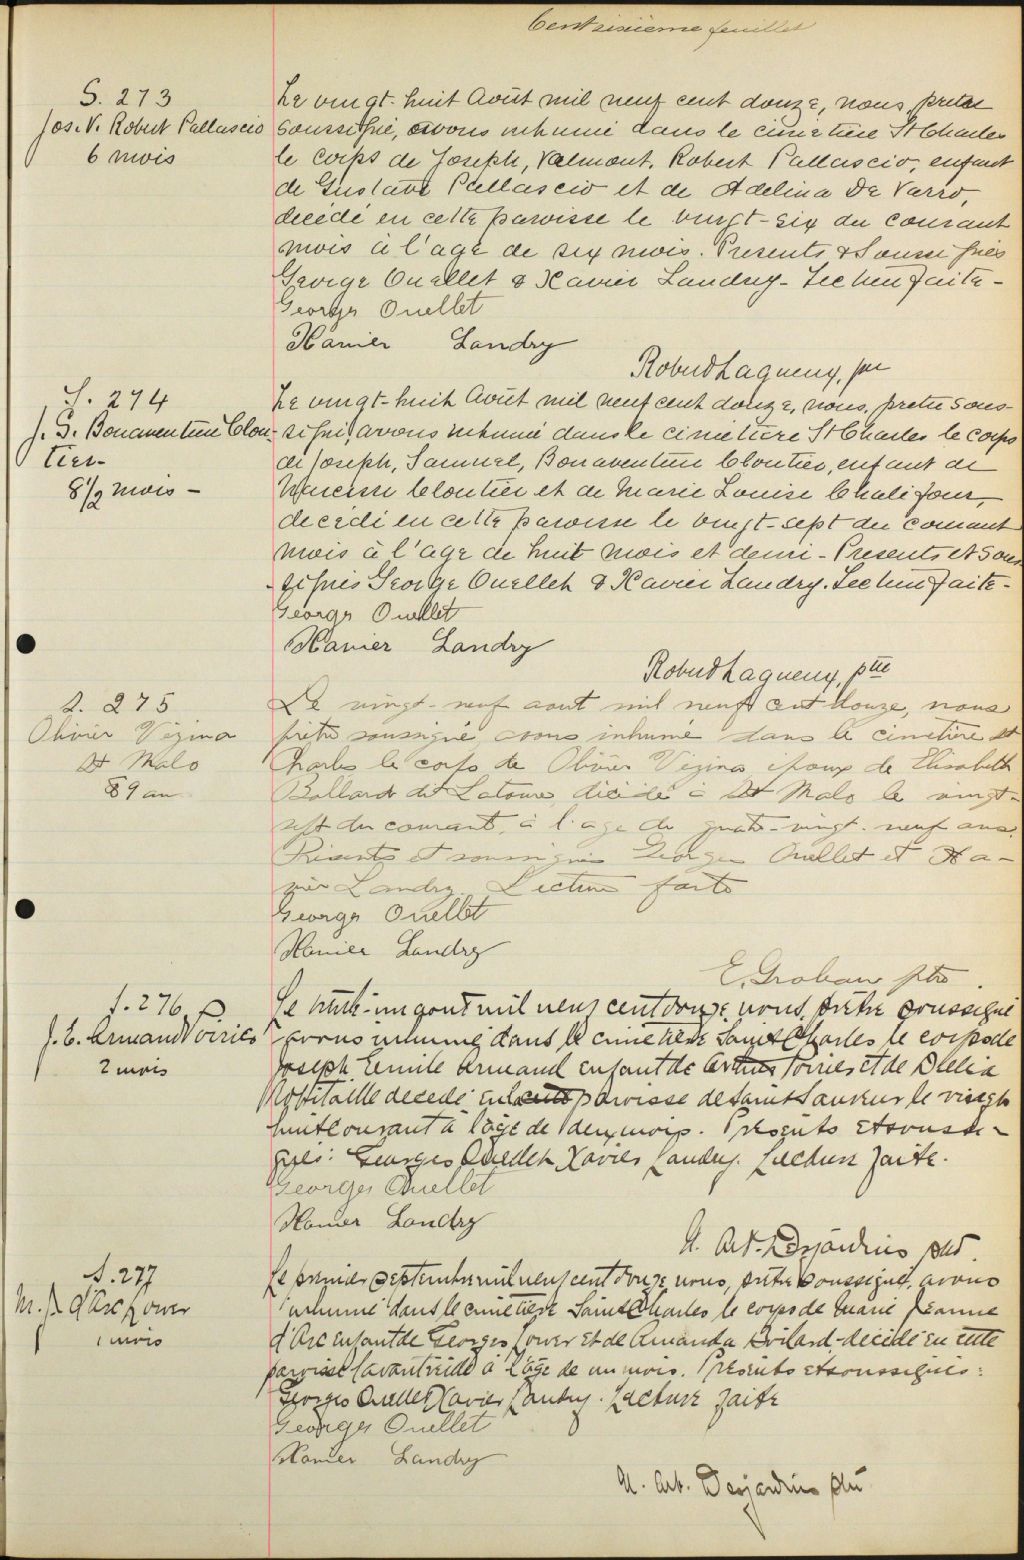 Cent sixième feuillet
S. 273
Jos. V. Robert Pallascio
6 mois
Le vingt-huit Août mil neuf cent douze, nous, pretre
soussigné, avons inhumé dans le cimetière St Charles
le corps de Joseph, Valmont, Robert Pallascio, enfant
de Gustave Pallascio et de Adelina De Varro,
decédé en cette paroisse le vingt-six du courant
mois à l'age de six mois. Presents & Soussignés
George Ouellet & Xavier Landry - Lecture faite -
Georges Ouellet
Xavier Landry
Robert Lagueux, ptre
S. 274
J. S. Bonaventure Clou-
tier-
8 1/2 mois -
Le vingt-huit Août mil neuf cent douze, nous, pretre sous-
signé, avons inhumé dans le cimetière St Charles le corps
de Joseph, Samuel, Bonaventure Cloutier, enfant de
Narcisse Cloutier et de Marie Louise Chalifour,
decédé en cette paroisse le vingt-sept du courant
mois à l'age de huit mois et demi - Presents et Sous-
signés George Ouellet & Xavier Landry. Lecture faite -
Georges Ouellet
Xavier Landry
Robert Lagueux, ptre
S. 275
Olivier Vézina
St Malo
89 ans
Le vingt-neuf aout mil neuf cent douze, nous
prêtre soussigné, avons inhumé dans le cimetière St
Charles le corps de Olivier Vézina, époux de Elisabeth
Ballard dit Latour, décédé à St Malo le vingt-
sept du courant, à l'age de quatre-vingt-neuf ans.
Présents et soussignés Georges Ouellet et Xa-
vier Landry. Lecture faite
Georges Ouellet
Xavier Landry
E. Grobau ptre
S. 276
J. E. Armand Poirier
2 mois
Le trente-un août mil neuf cent douze nous, prêtre soussigné
avons inhumé dans le cimetière Saint Charles le corps de
Joseph Emile Armand enfant de Arthur Poirier et de Delia
Robitaille decedé en la cette paroisse de Saint Sauveur le vingt
huit courant à l'âge de deux mois. Présents et soussi-
gnés: Georges Ouellet Xavier Landry. Lecture faite.
Georges Ouellet
Xavier Landry
A. Art. Desjardins ptre.
S. 277
M. J. d'Arc Power
1 mois
Le premier septembre mil neuf cent douze, nous, prêtre soussigné, avons
inhumé dans le cimetière Saint Charles le corps de Marie Jeanne
d'Arc enfant de Georges Power et de Amanda décédé en cette
paroisse l'avant veille à l'âge de un mois. Présents et soussignés:
Georges Ouellet Xavier Landry. Lecture faite
Georges Ouellet
Xavier Landry
A. Art. Desjardins ptre